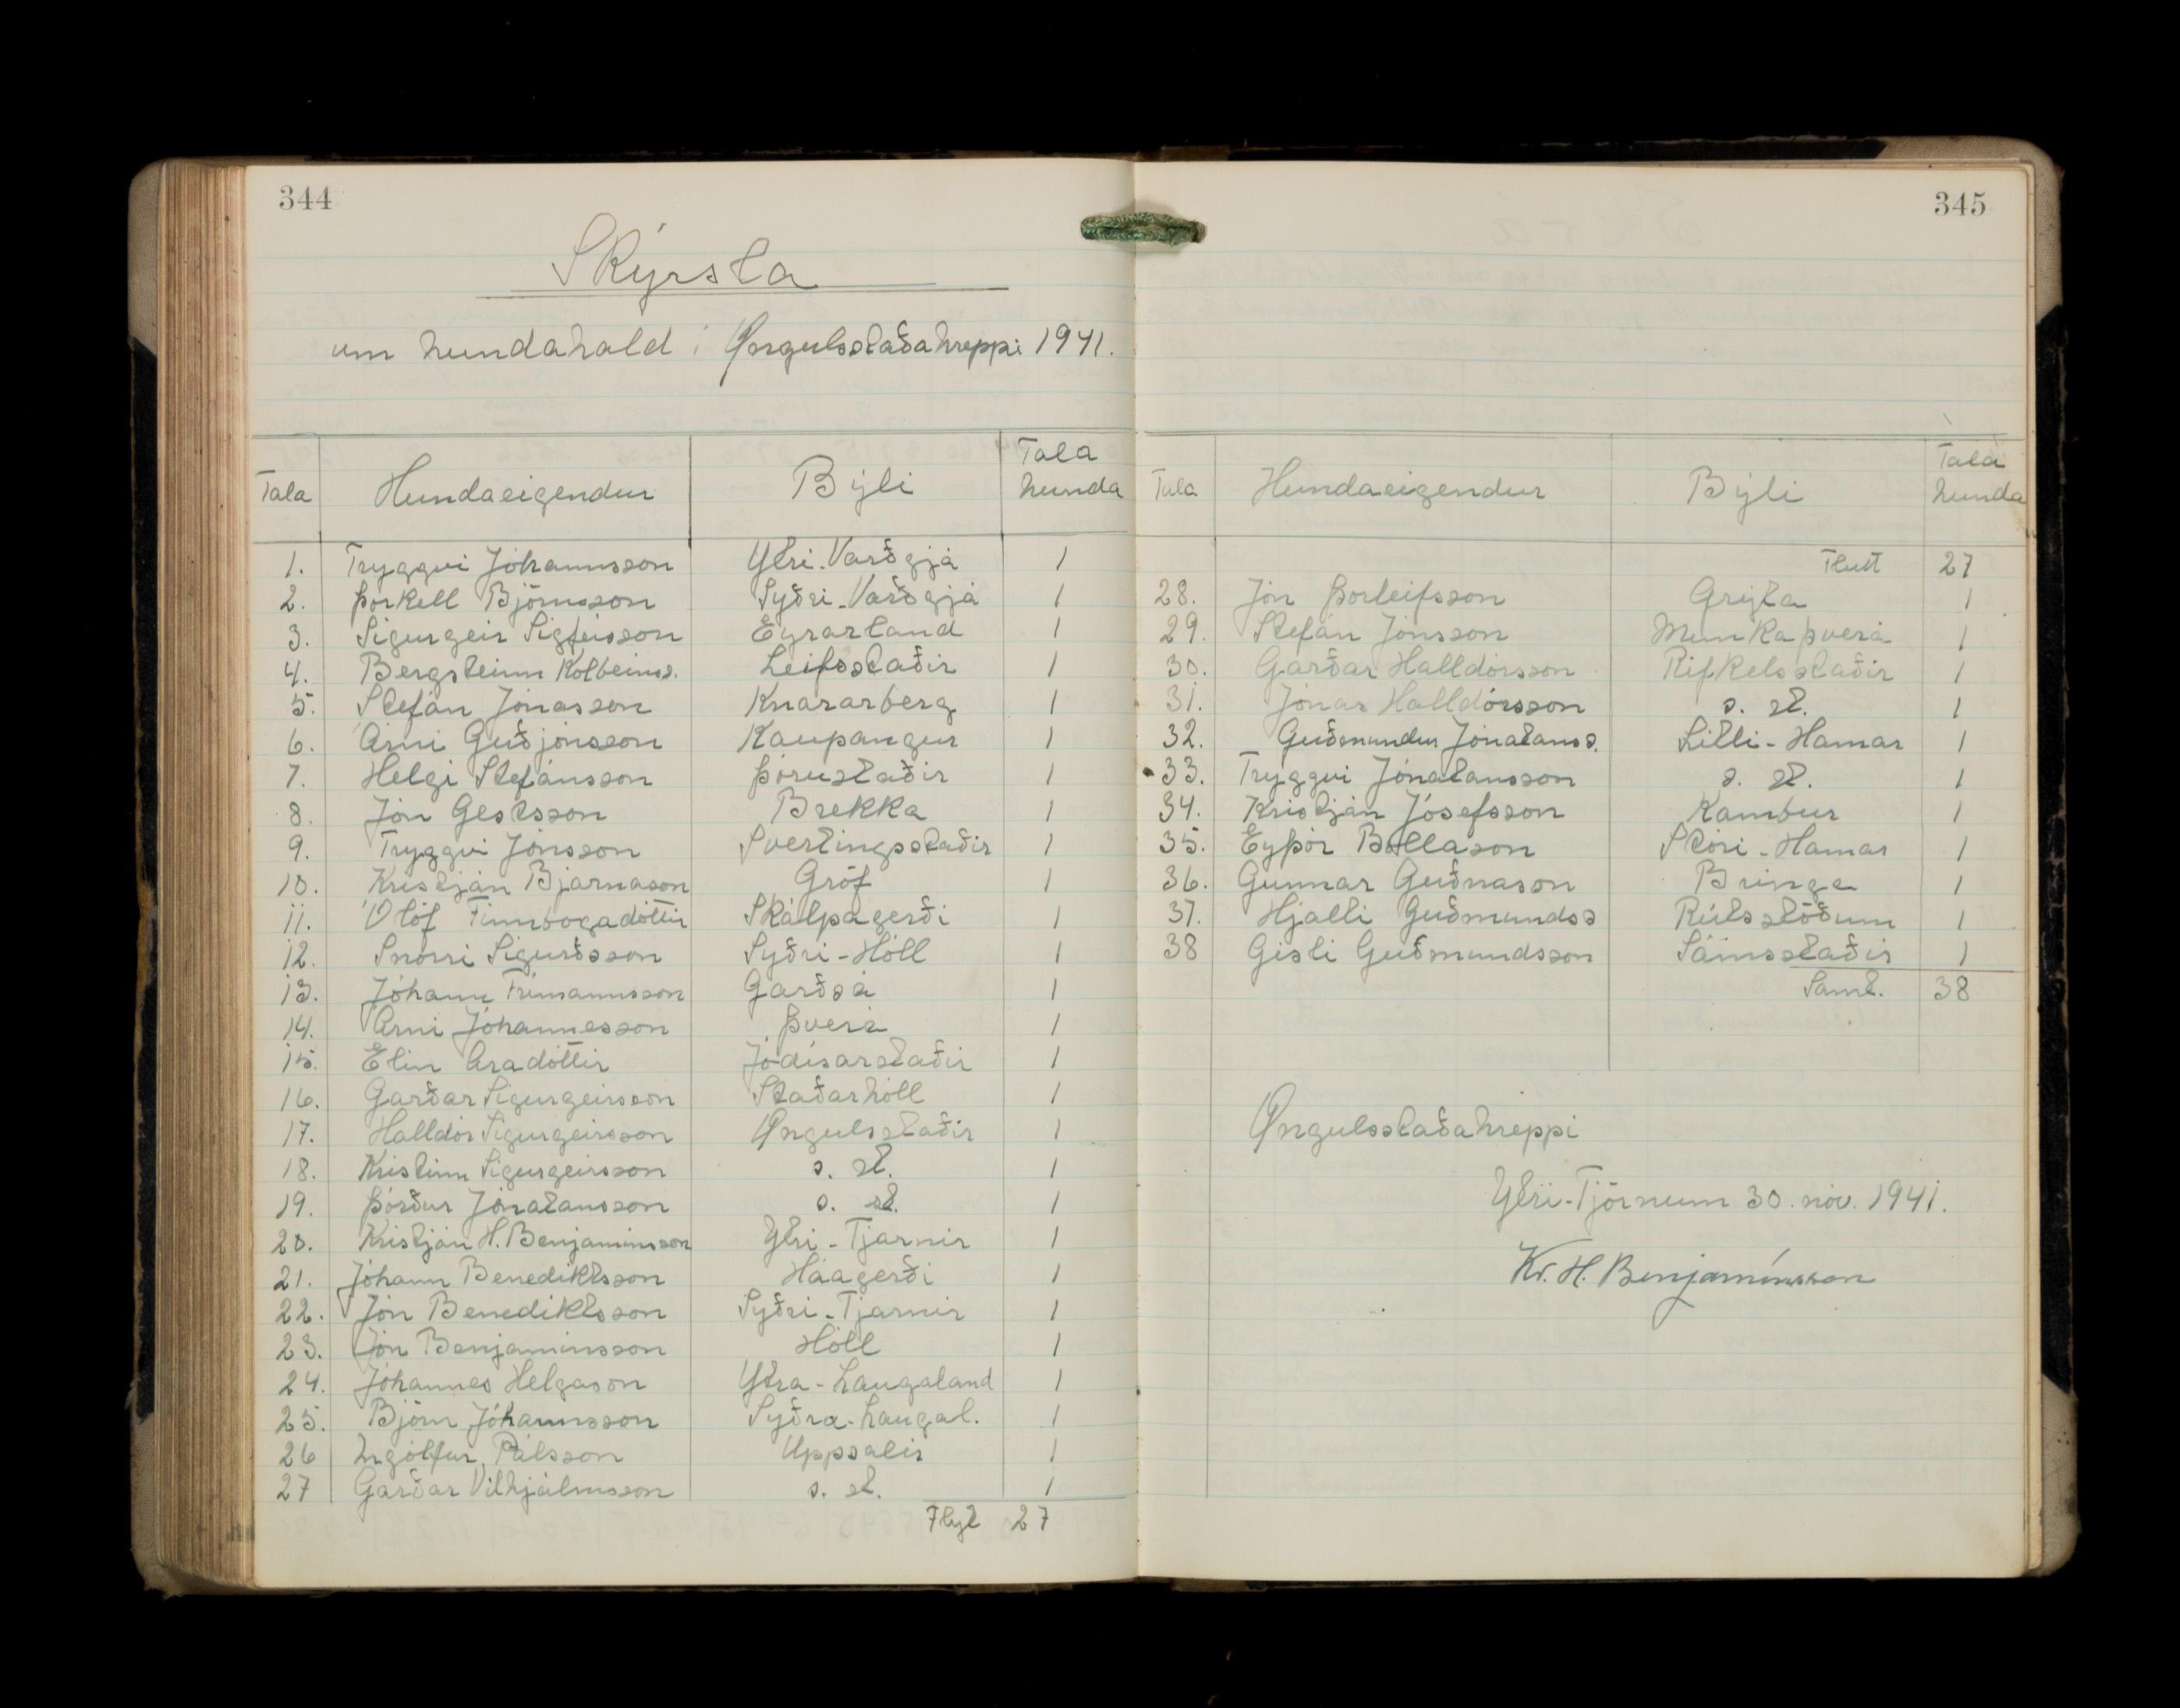 344
Skýrsla
um hundahald í Øngulsstaðahreppi 1941.
Tala Hundaeigendur Býli Tala hunda
1. Tryggvi Jóhannsson Ytri-Varðgjá 1
2. Þorkell Björnsson Syðri-Varðgjá 1
3. Sigurgeir Sigfússon Eyrarland 1
4. Bergsteinn Kolbeinss. Leifsstaðir 1
5. Stefán Jónasson Knararberg 1
6. Árni Guðjónsson Kaupangur 1
7. Helgi Stefánsson Þórustaðir 1
8. Jón Gestsson Brekka 1
9. Tryggvi Jónsson Svertingsstaðir 1
10. Kristján Bjarnason Gróf 1
11. Ólöf Finnbogadóttir Skálpagerði 1
12. Snorri Sigurðsson Syðri-Hóll 1
13. Jóhann Frímannsson Garðsá 1
14. Árni Jóhannesson Þverá 1
15. Elín Aradóttir Jódísarstaðir 1
16. Garðar Sigurgeirsson Staðarhóll 1
17. Halldór Sigurgeirsson Øngulsstaðir 1
18. Kristinn Sigurgeirsson s. st. 1
19. Þórður Jónatansson s. st. 1
20. Kristján H. Benjamínsson Ytri-Tjarnir 1
21. Jóhann Benediktsson Háagerði 1
22. Jón Benediktsson Syðri-Tjarnir 1
23. Jón Benjamínsson Hóll 1
24. Jóhannes Helgason Ytra-Laugaland 1
25. Björn Jóhannsson Syðra-Laugal. 1
26 Ingólfur Pálsson Uppsalir 1
27 Garðar Vilhjálmsson s. st. 1
Flyt 27
345
Tala Hundaeigendur Býli Tala hunda
Flutt 27
28. Jón Þorleifsson Grýta 1
29. Stefán Jónsson Munkaþverá 1
30. Garðar Halldórsson Rifkelsstaðir 1
31. Jónas Halldórsson s. st. 1
32. Guðmundur Jónatanss. Litli-Hamar 1
33. Tryggvi Jónatansson s. st. 1
34. Kristján Jósefsson Kambur 1
35. Eyþór Bollason Stóri-Hamar 1
36. Gunnar Guðnason Bringa 1
37. Hjalti Guðmundss Rútsstöðum 1
38 Gísli Guðmundsson Sámsstaðir 1
Samt. 38
Øngulsstaðahreppi
Ytri-Tjörnum 30. nóv. 1941.
Kr. H. Benjamínsson